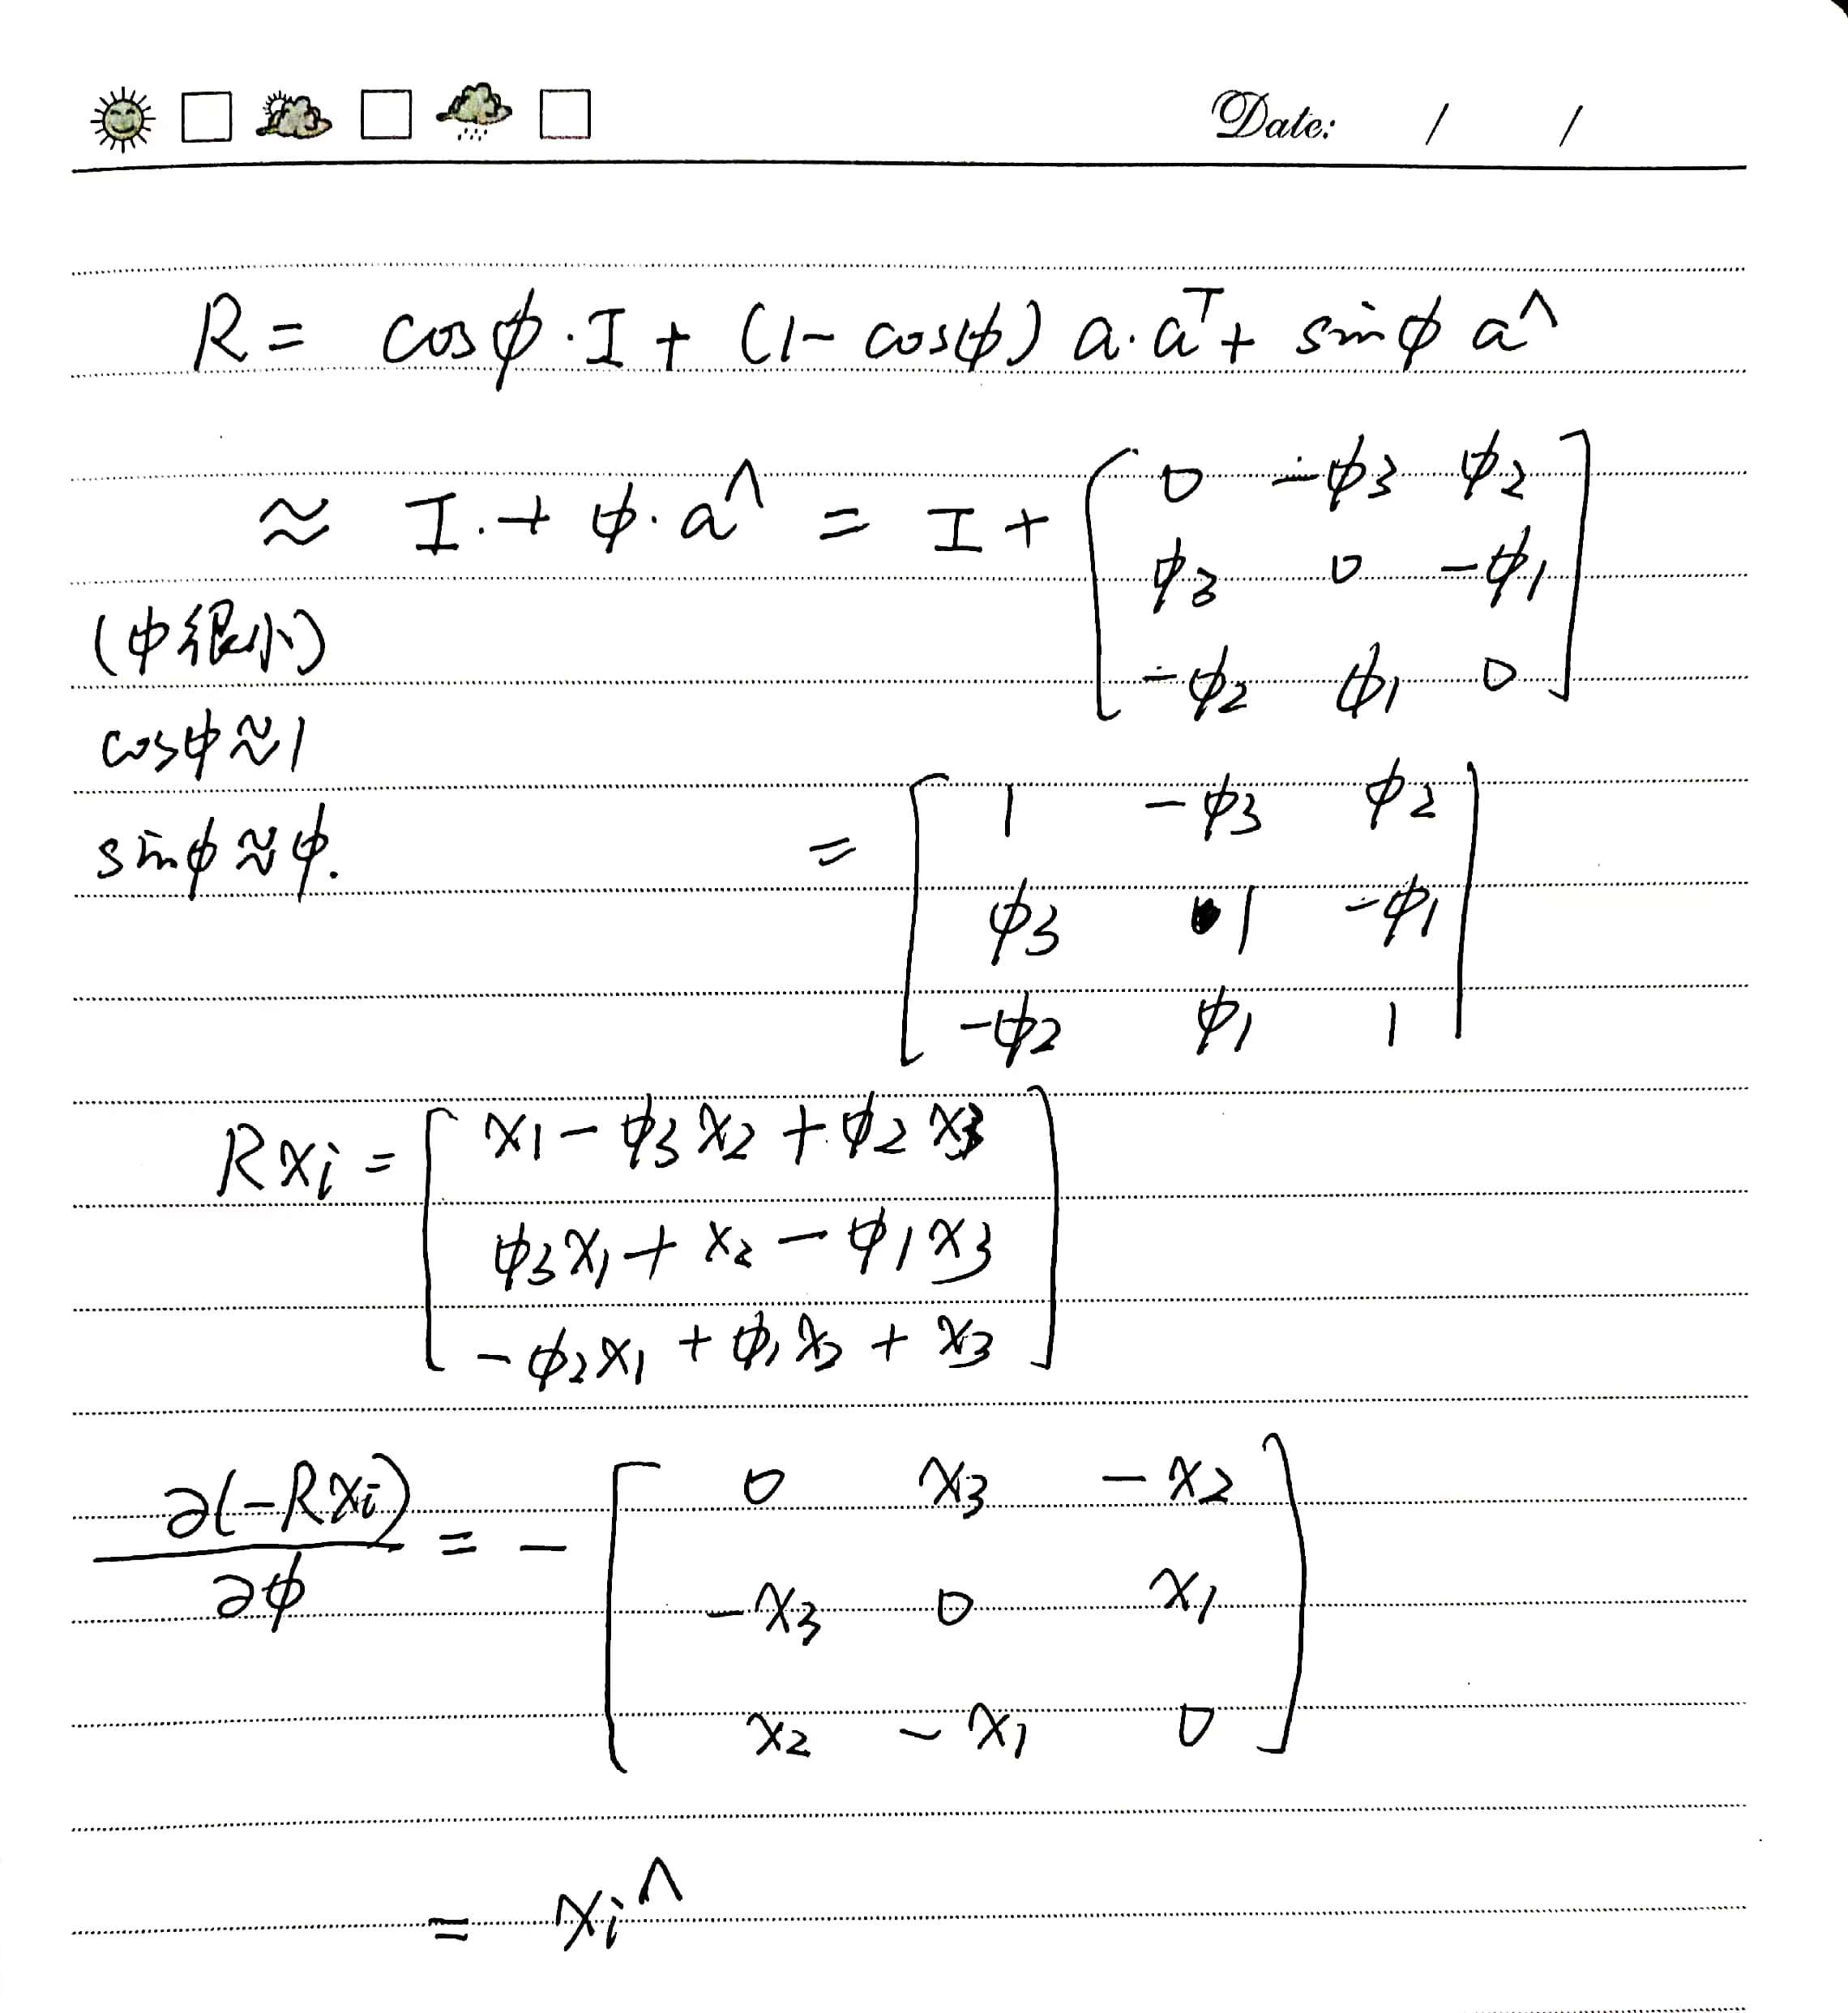 Date: / /
R = cosϕ · I + (1 - cosϕ) a · a^T + sinϕ a^
≈ I · + ϕ · a^ = I + [ 0 -ϕ3 ϕ2
ϕ3 0 -ϕ1
-ϕ2 ϕ1 0 ]
(ϕ很小)
cosϕ ≈ 1
sinϕ ≈ ϕ.
= [ 1 -ϕ3 ϕ2
ϕ3 1 -ϕ1
-ϕ2 ϕ1 1 ]
Rxi = [ x1 - ϕ3x2 + ϕ2x3
ϕ3x1 + x2 - ϕ1x3
-ϕ2x1 + ϕ1x2 + x3 ]
∂(-Rxi) / ∂ϕ = - [ 0 x3 -x2
-x3 0 x1
x2 -x1 0 ]
= xi^